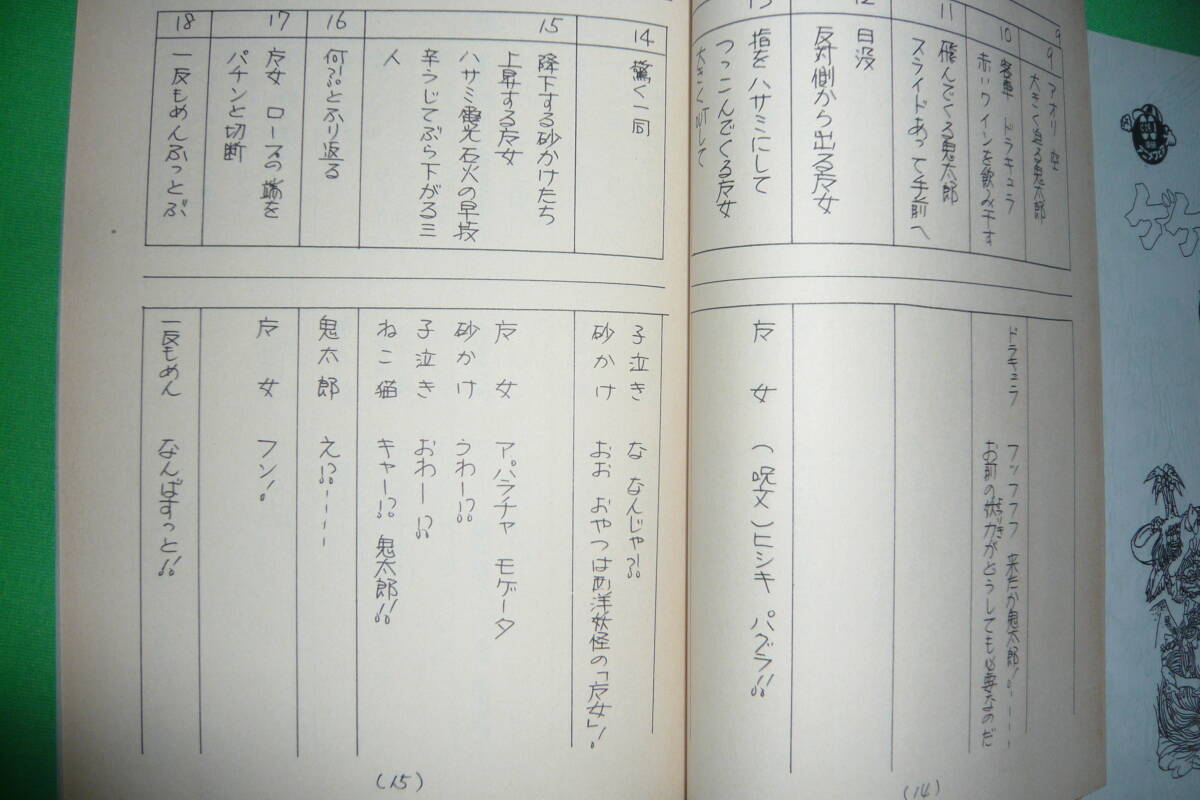 9
9
アオリ 空
大きく迫る鬼太郎
10
客車 ドラキュラ
赤いワインを飲み干す
11
飛んでくる鬼太郎
スライドあって手前へ
12
日没
反対側から出る方女
13
指をハサミにして
つっこんでくる方女
大きくOUTして
ドラキュラ フッフフフ 来たか鬼太郎!
お前の妖力がどうしても必要なのだ
ようりき
方女 (呪文)ヒシキ パズラ!!
(14)
14
驚く一同
15
降下する砂かけたち
上昇する方女
ハサミ電光石火の早技
辛うじてぶら下がる三
人
16
何!?とふり返る
17
方女 ロースの端を
パチンと切断
18
一反もめんふっとぶ
子泣き な なんじゃ?!
砂かけ おお おやつは西洋妖怪の「方女」!
方女 アパラチャ モゲータ
砂かけ うわー!?
子泣き おわー!?
ねこ猫 キャー!? 鬼太郎!!
鬼太郎 え!?
方女 フン!
一反もめん なんばすっと!!
(15)
ゲゲ